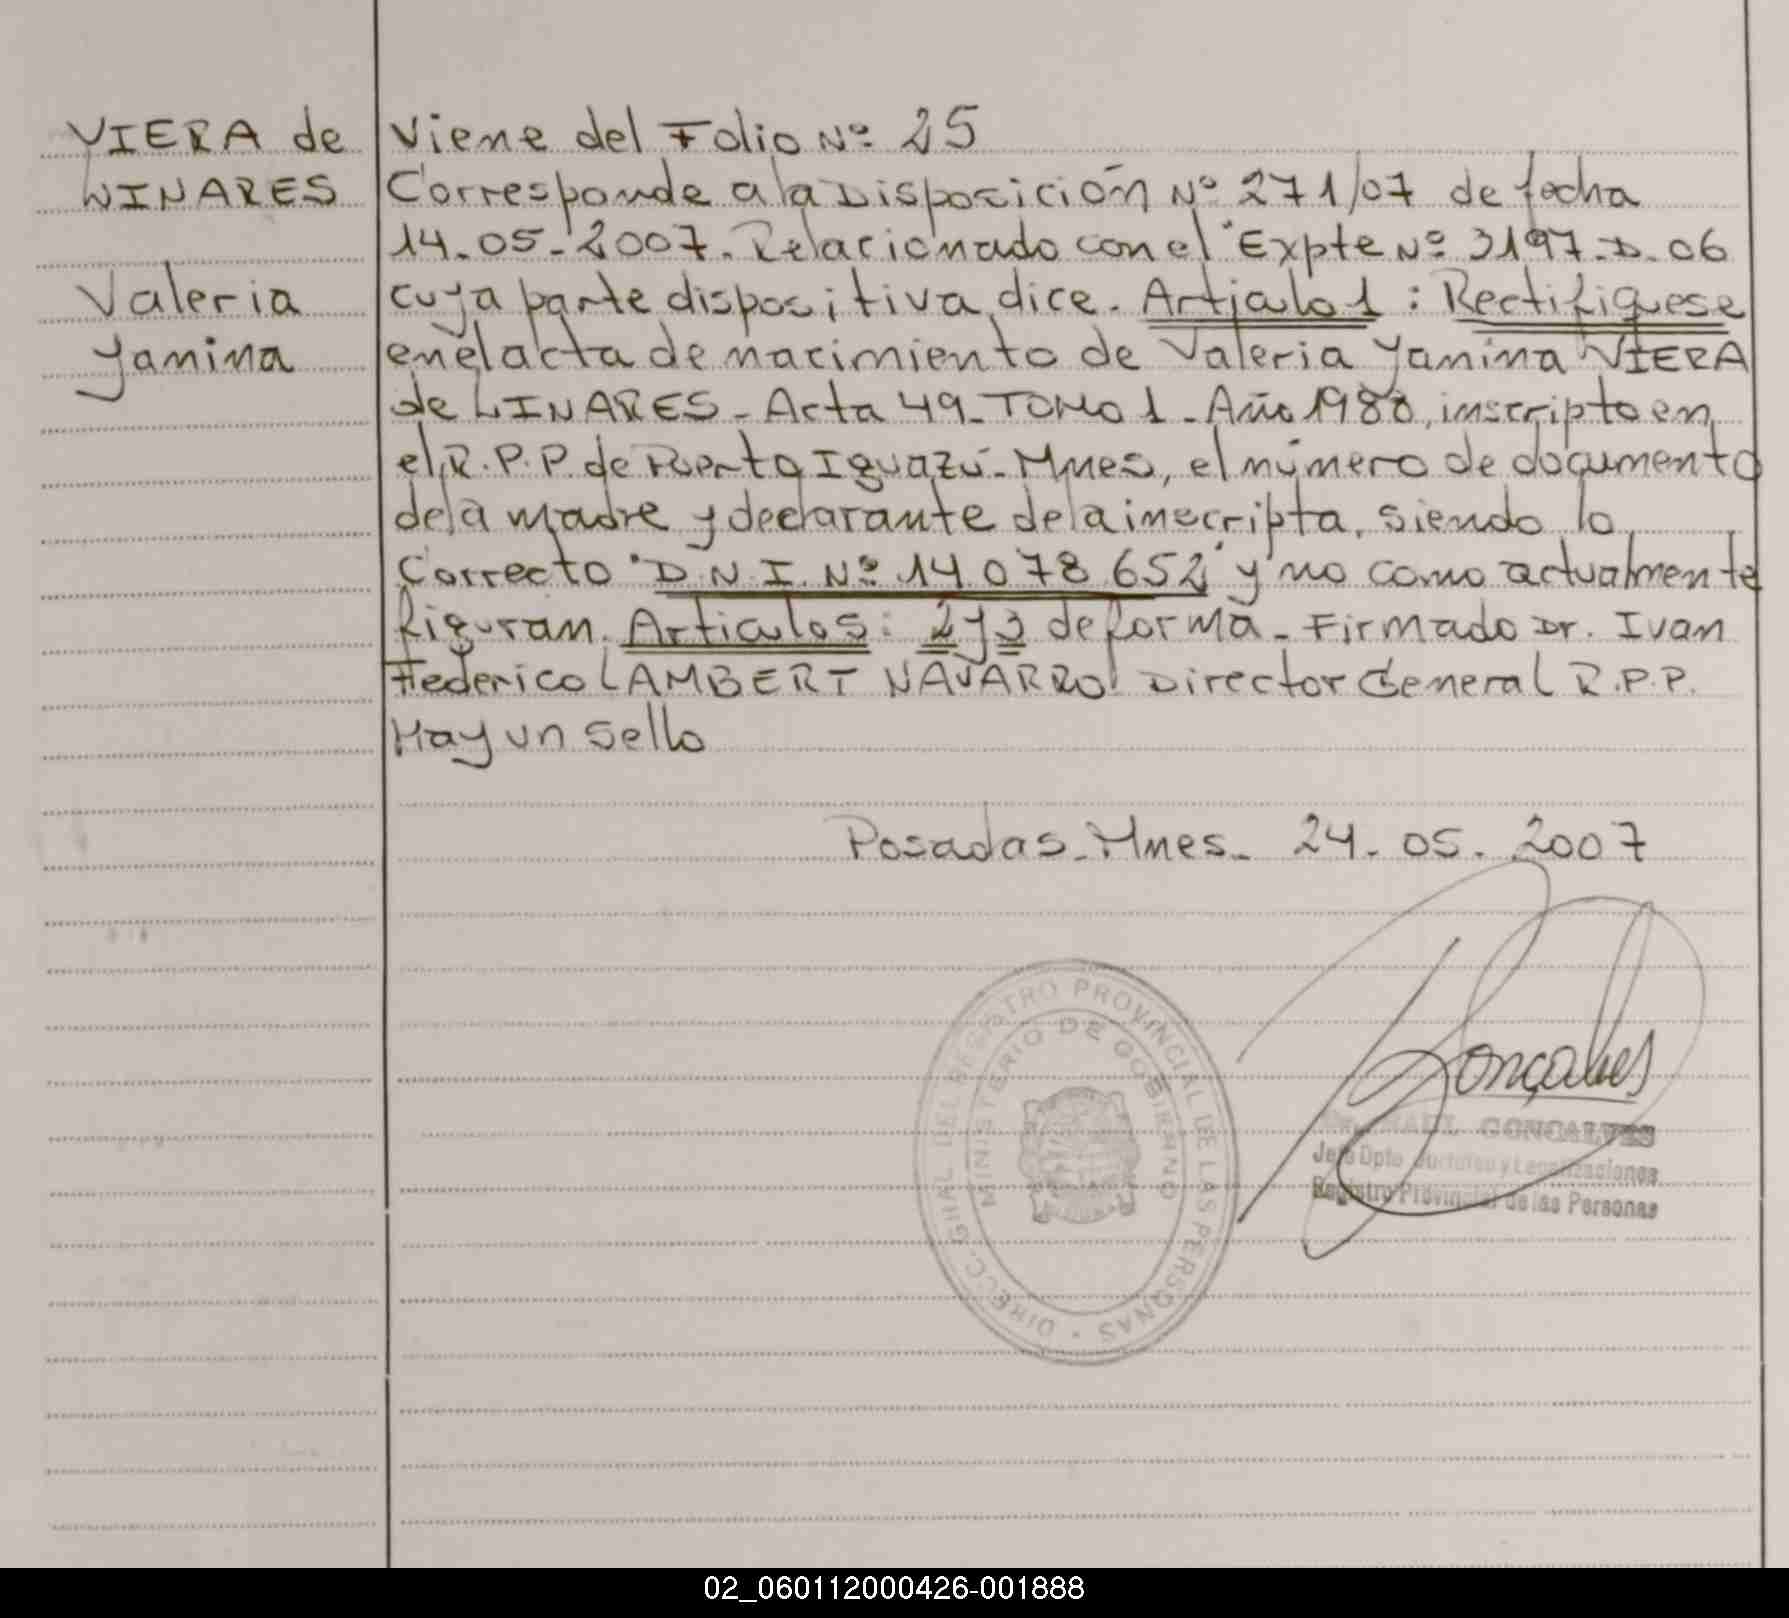 VIERA de
LINARES
Valeria
Yanina
Viene del Folio Nº 25
Corresponde a la Disposición Nº 271/07 de fecha
14-05-2007. Relacionado con el "Expte Nº 3197-D-06
cuya parte dispositiva dice. Articulo 1 : Rectifiquese
en el acta de nacimiento de Valeria Yanina VIERA
de LINARES - Acta 49 - TOMO 1 - Año 1980, inscripto en
el R.P.P. de Puerto Iguazú - Mnes, el número de documento
de la madre y declarante de la inscripta, siendo lo
Correcto "D.N.I. Nº 14.078.652" y no como actualmente
figuran. Articulos : 2 y 3 de forma - Firmado Dr. Ivan
Federico LAMBERT NAVARRO Director General R.P.P.
Hay un sello
Posadas - Mnes - 24 - 05 - 2007
DIRECC. GRAL DEL REGISTRO PROVINCIAL DE LAS PERSONAS
MINISTERIO DE GOBIERNO
Gonçalves
RAUL GONCALVES
Jefe Dpto y Legalizaciones
Registro Provincial de las Personas
02_060112000426-001888